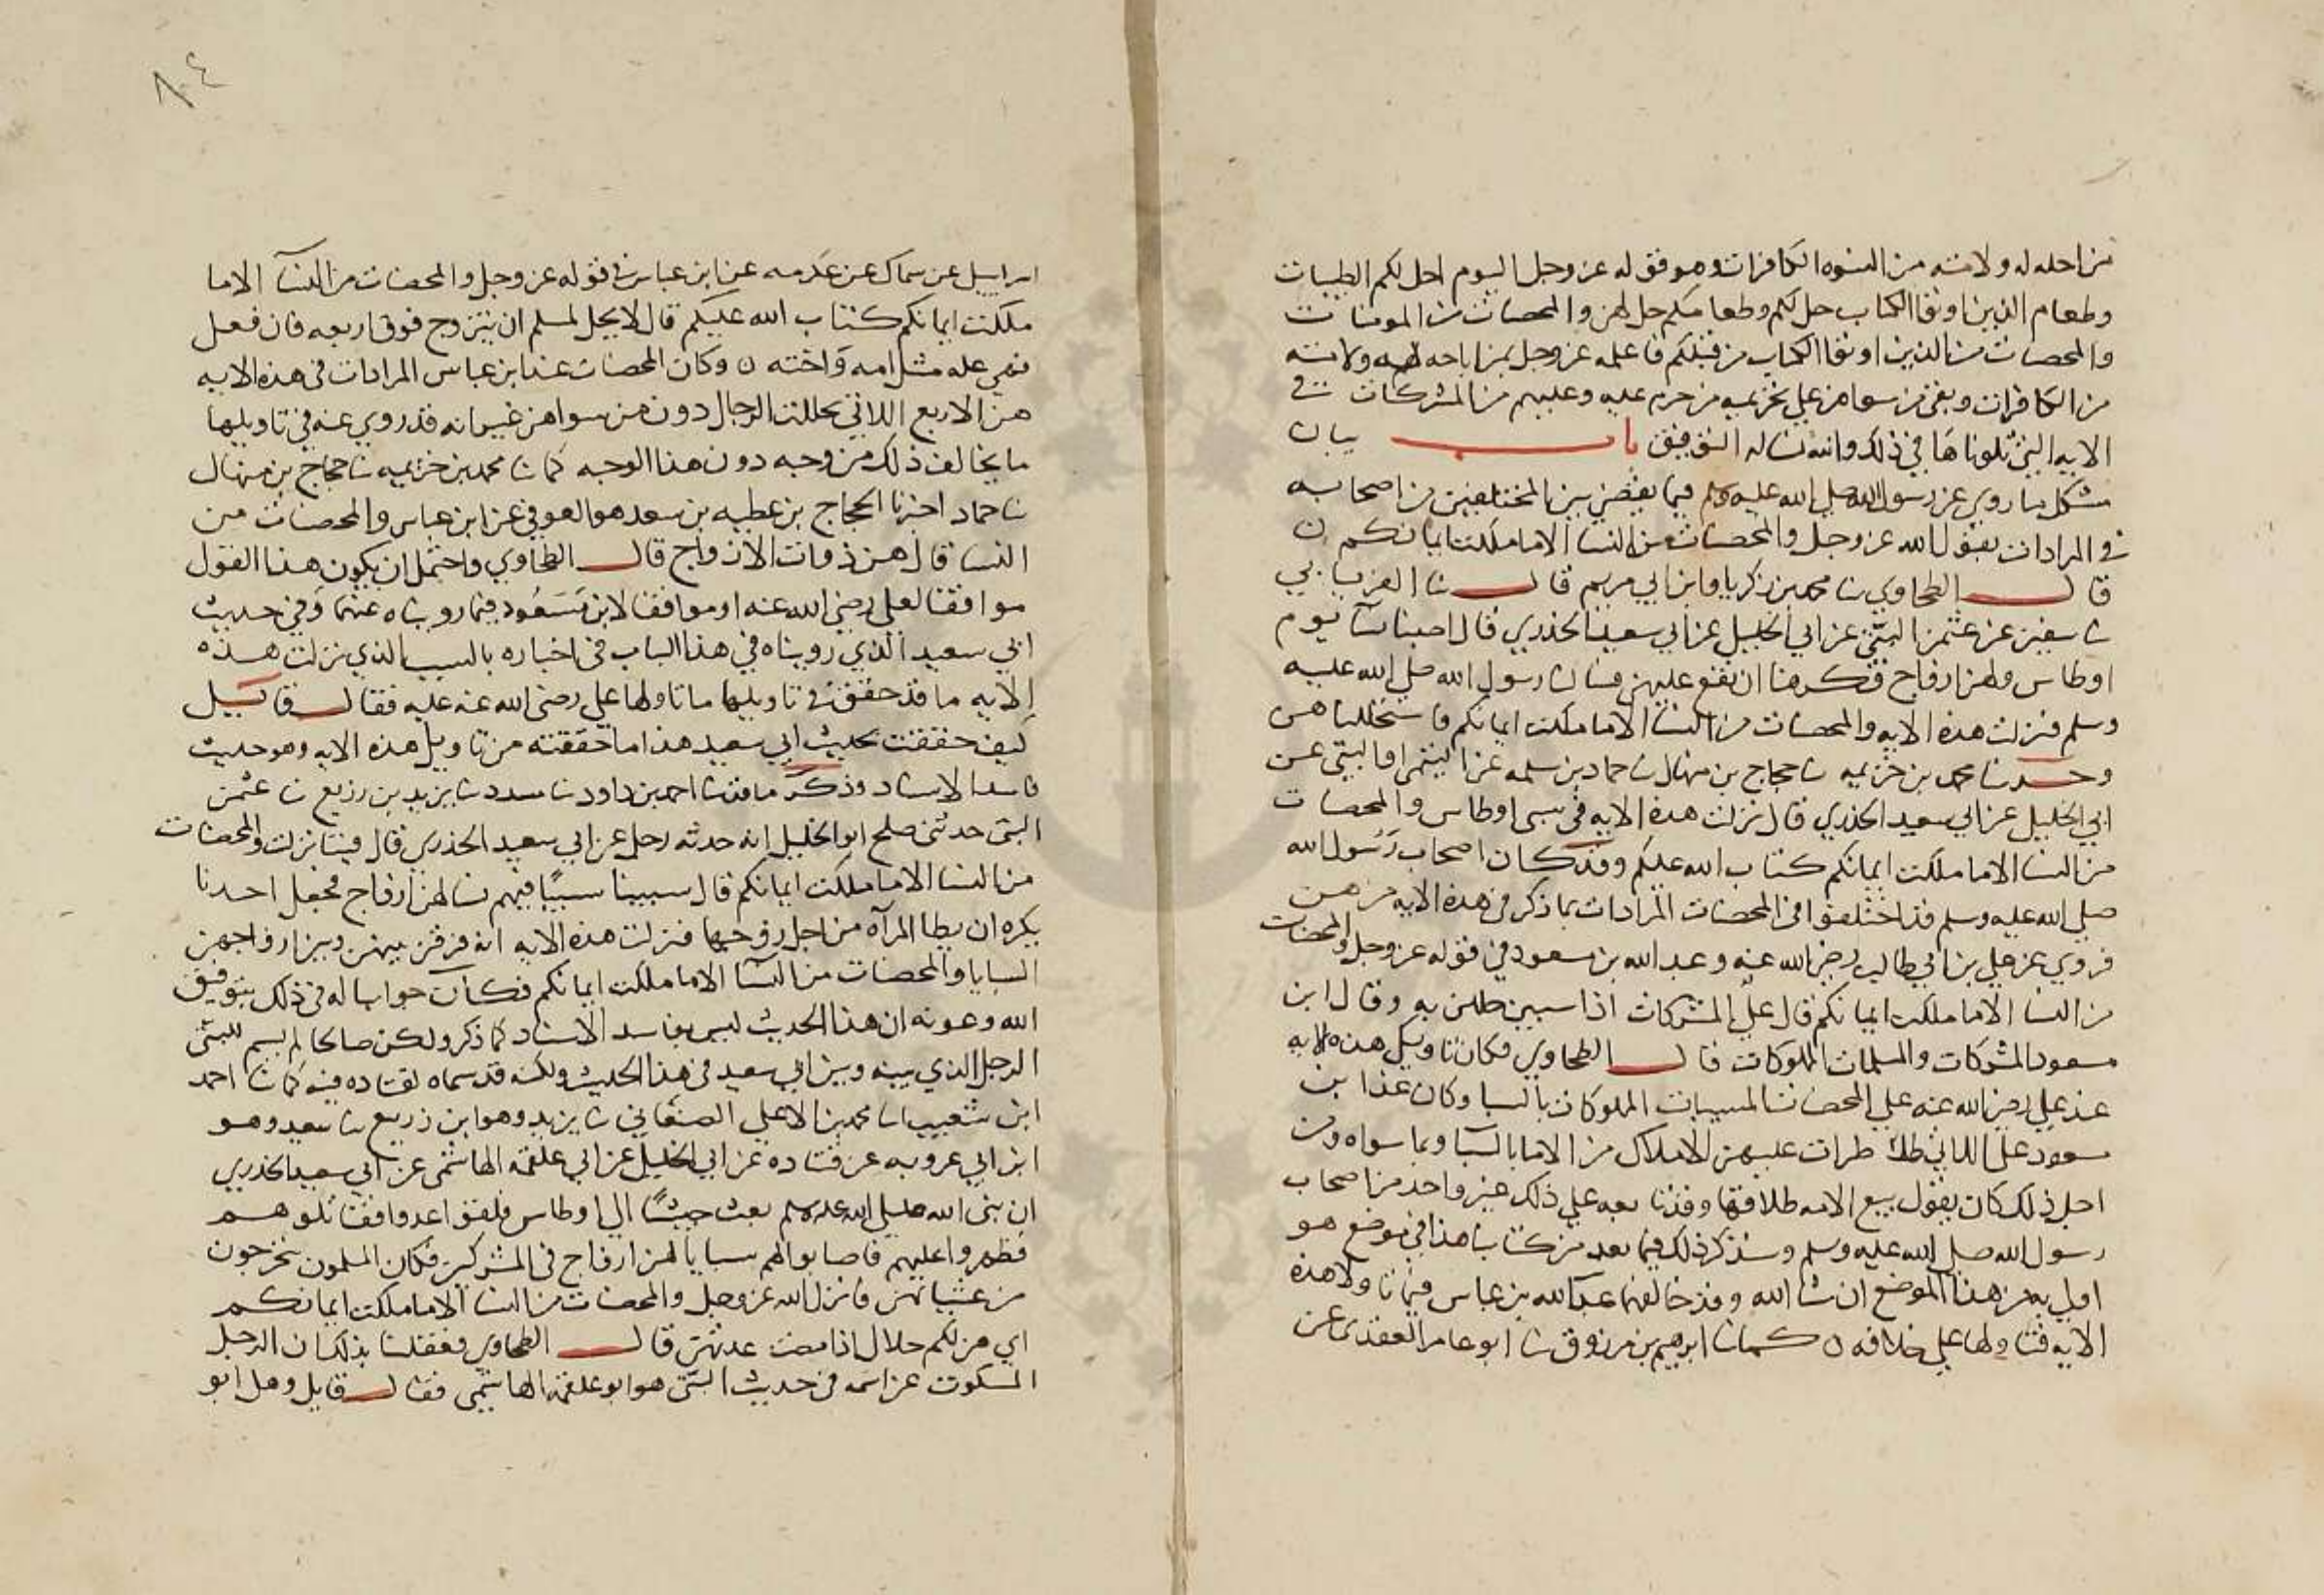 من احله له ولامته من النسوه الكافرات وهو قوله عز وجل اليوم احل لكم الطيبات
وطعام الذين اوتوا الكتاب حل لكم وطعامكم حل لهم والمحصنات من المومنات
والمحصنات من الذين اوتوا الكتاب من قبلكم فاعلمه عز وجل بمن اباحه له ولامته
من الكافرات وبقي من سواهن علي تحريمه من حرم عليه وعليهم من المشركات في
الايه التي تلوناها في ذلك والله نساله التوفيق باب بيان
مشكل ما روي عن رسول الله صلي الله عليه وسلم فيما يقضي بين المختلفين من اصحابه
في المرادات بقول الله عز وجل والمحصنات من النسا الا ما ملكت ايمانكم ن
قال الطحاوي نا محمد بن زكريا وابن ابي مريم قال نا الفريابي
نا سفين عن عثمن البتي عن ابي الخليل عن ابي سعيد الخدري قال اصبنا نسآ يوم
اوطاس ولهن ازواج فكرهنا ان نقع عليهن فسالنا رسول الله صلي الله عليه
وسلم فنزلت هذه الايه والمحصنات من النسآ الا ما ملكت ايمانكم فاستحللناهن
وحدثنا محمد بن خزيمه نا حجاج بن منهال نا حماد بن سلمه عن التيمي او البتي عن
ابي الخليل عن ابي سعيد الخدري قال نزلت هذه الايه في سبي اوطاس والمحصنات
من النسا الا ما ملكت ايمانكم كتاب الله عليكم وقد كان اصحاب رسول الله
صلي الله عليه وسلم قد اختلفوا في المحصنات المرادات بما ذكر في هذه الايه من هن
فروي عن علي بن ابي طالب رضي الله عنه وعبد الله بن مسعود في قوله عز وجل والمحصنات
من النسا الا ما ملكت ايمانكم قال علي المشركات اذا سبين حللن به وقال ابن
مسعود المشركات والمسلمات المملوكات قال الطحاوي فكان تاويل هذه الايه
عند علي رضي الله عنه علي المحصنات المسبيات المملوكات بالسبا وكان عند ابن
مسعود علي اللاتي طرات عليهن الاملاك من الاما بالسبا وبما سواه ومن
اجل ذلك كان يقول بيع الامه طلاقها وقد تابعه علي ذلك غير واحد من اصحاب
رسول الله صلي الله عليه وسلم وسنذكر ذلك فيما بعد من كتابنا هذا في موضع هو
اولي به من هذا الموضع ان شا الله وقد خالفهما عبد الله بن عباس فيما تاولا هذه
الايه فتاولها علي خلافه ن كما نا ابرهيم بن مرزوق نا ابو عامر العقدي عن
اسرايل عن سماك عن عكرمه عن ابن عباس في قوله عز وجل والمحصنات من النسآ الا ما
ملكت ايمانكم كتاب الله عليكم قال لا يحل لمسلم ان يتزوج فوق اربعه فان فعل
فهي عليه مثل امه واخته ن وكان المحصنات عند ابن عباس المرادات في هذه الايه
هن الاربع اللاتي يحللن للرجال دون من سواهن غير انه قد روي عنه في تاويلها
ما يخالف ذلك من وجه دون هذا الوجه كما نا محمد بن خزيمه نا حجاج بن منهال
نا حماد اخبرنا الحجاج بن عطيه بن سعد هو العوفي عن ابن عباس والمحصنات من
النسا قال هن ذوات الازواج قال الطحاوي واحتمل ان يكون هذا القول
موافقا لعلي رضي الله عنه او موافقا لابن مسعود فيما رويناه عنهما وفي حديث
ابي سعيد الذي رويناه في هذا الباب في اخباره بالسبب الذي نزلت هذه
الايه ما قد حقق في تاويلها ما تاولها علي رضي الله عنه عليه فقال قايل
كيف حققت بحديث ابي سعيد هذا ما حققته من تاويل هذه الايه وهو حديث
فاسد الاسناد وذكر ما قد نا احمد بن داود نا مسدد نا يزيد بن زريع نا عثمن
البتي حدثني صلح ابو الخليل انه حدثه رجل عن ابي سعيد الخدري قال فينا نزلت والمحصنات
من النسا الا ما ملكت ايمانكم قال سبينا سبيا فيهم نسا لهن ازواج فجعل احدنا
يكره ان يطا المرآه من اجل زوجها فنزلت هذه الايه انه فرق بينهن وبين ازواجهن
السبايا والمحصنات من النسآ الا ما ملكت ايمانكم فكان جوابنا له في ذلك بتوفيق
الله وعونه ان هذا الحديث ليس بفاسد الاسناد كما ذكر ولكن صالحا لم يسم للبتي
الرجل الذي بينه وبين ابي سعيد في هذا الحديث ولكنه قد سماه لقتاده فيه كما نا احمد
ابن شعيب انا محمد بن الاعلي الصنعاني نا يزيد وهو ابن زريع نا سعيد وهو
ابن ابي عروبه عن قتاده عن ابي الخليل عن ابي علقمه الهاشمي عن ابي سعيد الخدري
ان نبي الله صلي الله عليه وسلم بعث جيشا الي اوطاس فلقوا عدوا فقاتلوهم
فظهروا عليهم فاصابوا لهم سبايا لهن ازواج في المشركين فكان المسلمون يتحرجون
من غشيانهن فانزل الله عز وجل والمحصنات من النسا الا ما ملكت ايمانكم
اي هن لكم حلال اذا مضت عدتهن قال الطحاوي فعقلنا بذلك ان الرجل
المسكوت عن اسمه في حديث البتي هو ابو علقمه الهاشمي فقال قايل وهل ابو